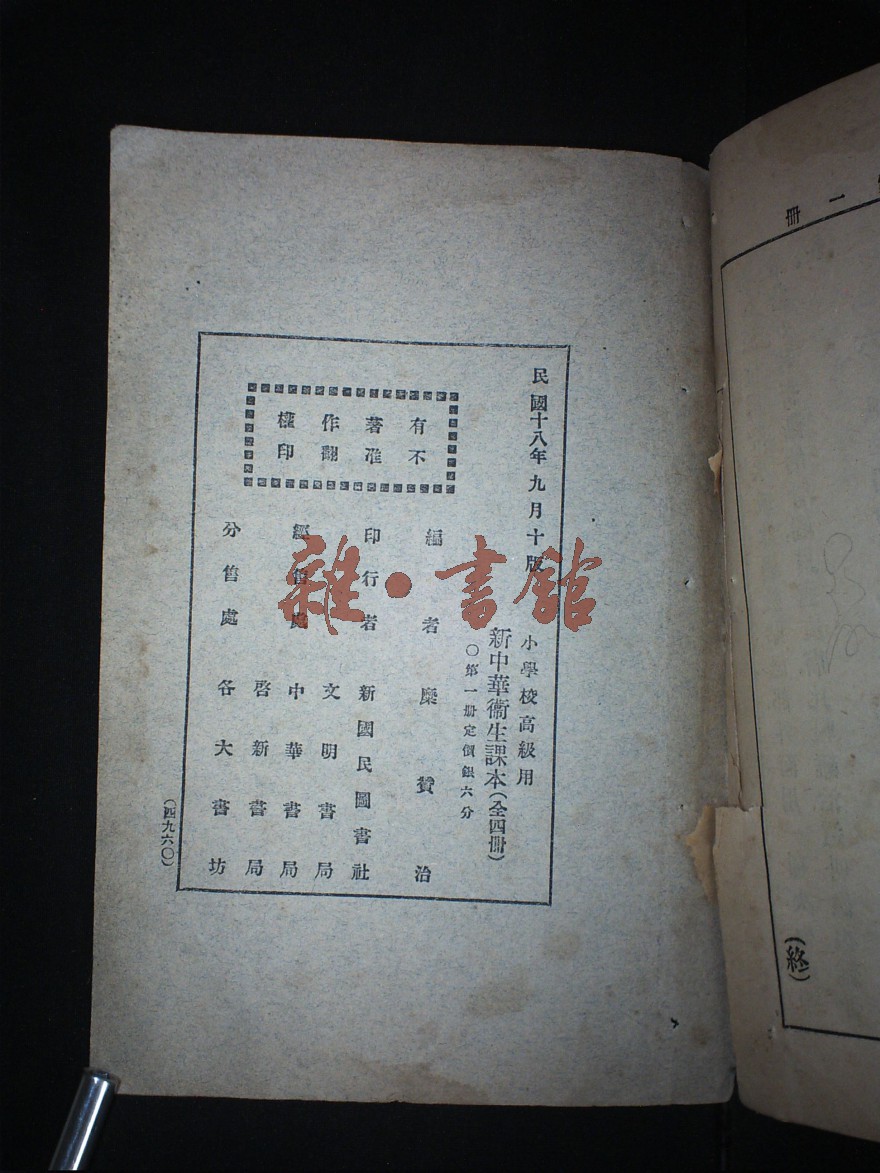 一冊
(終)
民國十八年九月十版
小學校高級用
新中華衞生課本(全四冊)
〇第一册定價銀六分
有不
著准
作翻
權印
編者 糜贊治
印行者 新國民圖書社
經售處 文明書局
中華書局
啓新書局
分售處 各大書坊
(四九六〇)
雜·書館